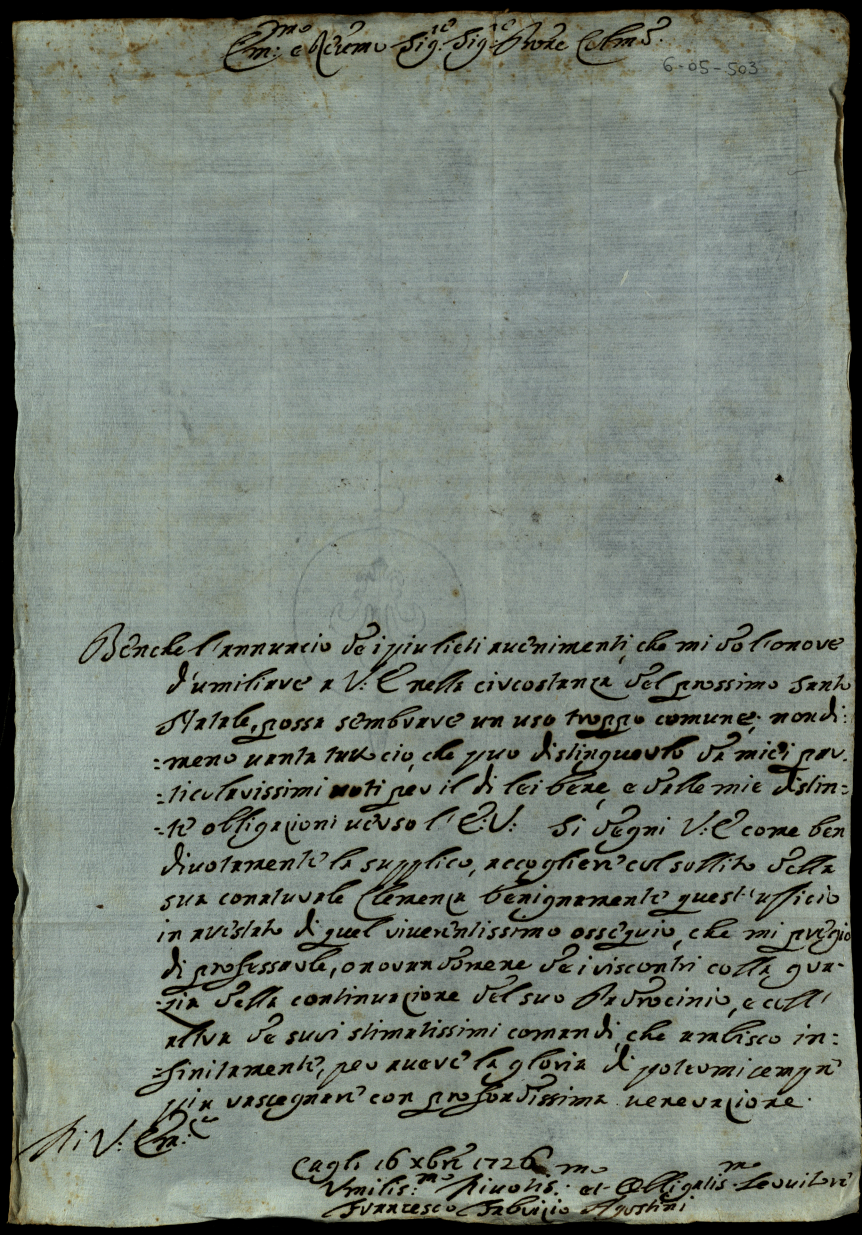 Em:mo e Reumo Sig:re Sig:re Prone Colmo
6-05-503
Benche l'annuncio dei piu lieti auenimenti, che mi do l'onore
d'umiliare a V: E nella circostanza del prossimo Santo
Natale, possa sembrare un uso troppo comune; nondi:
:meno uanta tutto ciò, che puo distinguerlo da miei par:
:ticolarissimi uoti per il di lei bene, e dalle mie distin:
:te obligazioni uerso l'E:V: Si degni V:E come ben
diuotamente la supplico, accogliere col sollito della
sua conaturale Clemenza benignamente quest'ufficio
in atestato di quel riuerentissimo ossequio, che mi pregio
di professarle, onorandomene dei riscontri colla gra:
:zia della continuazione del suo Padrocinio, e coll'
altra de suoi stimatissimi comandi, che ambisco in:
:finitamente, per auere la gloria di potermi sempre
piu rassegnare con profondissima uenerazione.
Di V: Em:za
Cagli 16 xbre 1726
Vmilis:mo Diuotis:mo et Obligatis:mo Seruitore
Francesco Fabrizio Agostini